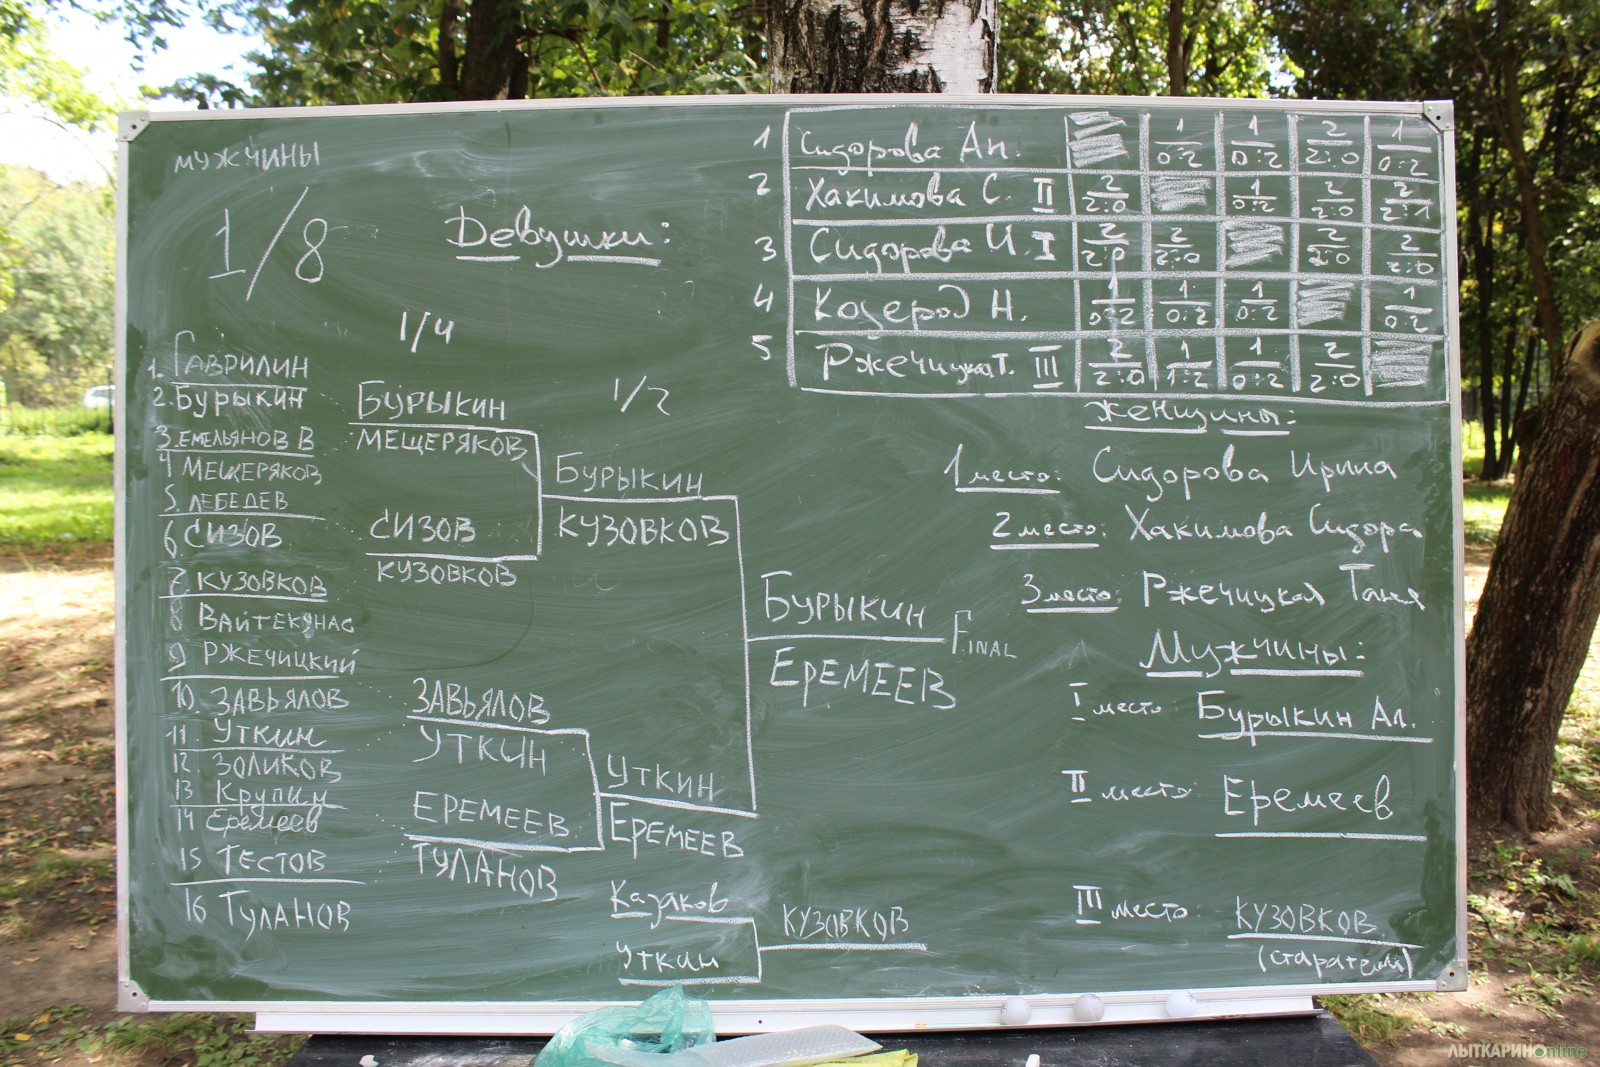 мужчины
1/8
Девушки:
1 Сидорова Ал. 1 0:2 1 0:2 2 2:0 1 0:2
2 Хакимова С. II 2 2:0 1 0:2 2 2:0 2 2:1
3 Сидорова И. I 2 2:0 2 2:0 2 2:0 2 2:0
4 Козерод Н. 1 0:2 1 0:2 1 0:2 1 0:2
5 Ржечицкая Т. III 2 2:0 1 1:2 1 0:2 2 2:0
1/4
1/2
1. Гаврилин
2. Бурыкин
3. Емельянов В
4 Мещеряков
5. Лебедев
6. Сизов
7. Кузовков
8 Вайтекунас
9 Ржечицкий
10. Завьялов
11. Уткин
12. Золиков
13 Крупин
14 Еремеев
15 Тестов
16 Туланов
Бурыкин
Мещеряков
Сизов
Кузовков
Завьялов
Уткин
Еремеев
Туланов
Бурыкин
Кузовков
Уткин
Еремеев
Бурыкин
Еремеев
Final
Казаков
Уткин
Кузовков
Женщины:
1 место: Сидорова Ирина
2 место: Хакимова Сидора
3 место: Ржечицкая Таня
Мужчины:
I место: Бурыкин Ал.
II место: Еремеев
III место: Кузовков
ЛЫТКАРИНОonline